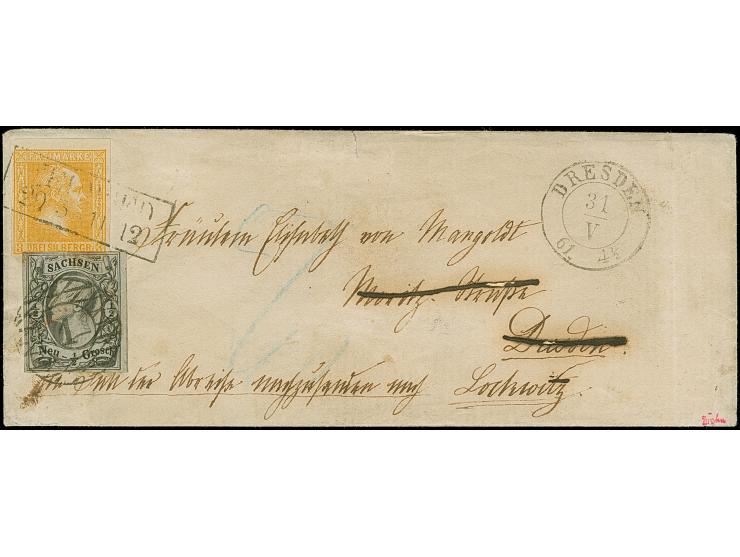 FREIMARKE
DREI SILBERGR.
SACHSEN
Neu ½ Grosch
DRESDEN
31
V
61.
Fräulein Elisabeth von Mangoldt
Moritz-Straße
Dresden.
nach der Abreise nachzusenden nach Lockwitz.